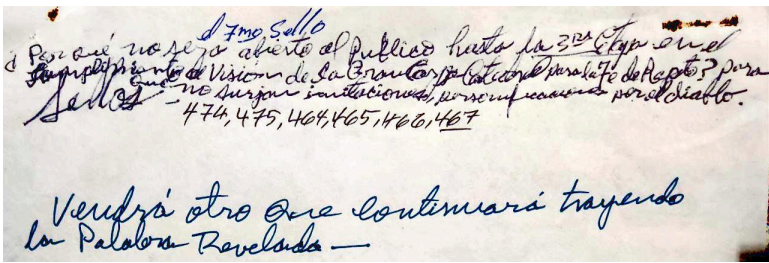 el 7mo Sello
¿Por qué no será abierto al público hasta la 3ra Etapa en el
Cumplimiento de Vision de la Gran Carpa Catedral para la fe de Rapto? para
Sellos que no surjan imitaciones, personificaciones por el diablo.
474, 475, 464, 465, 466, 467
Vendrá otro que continuará trayendo
la Palabra Revelada —